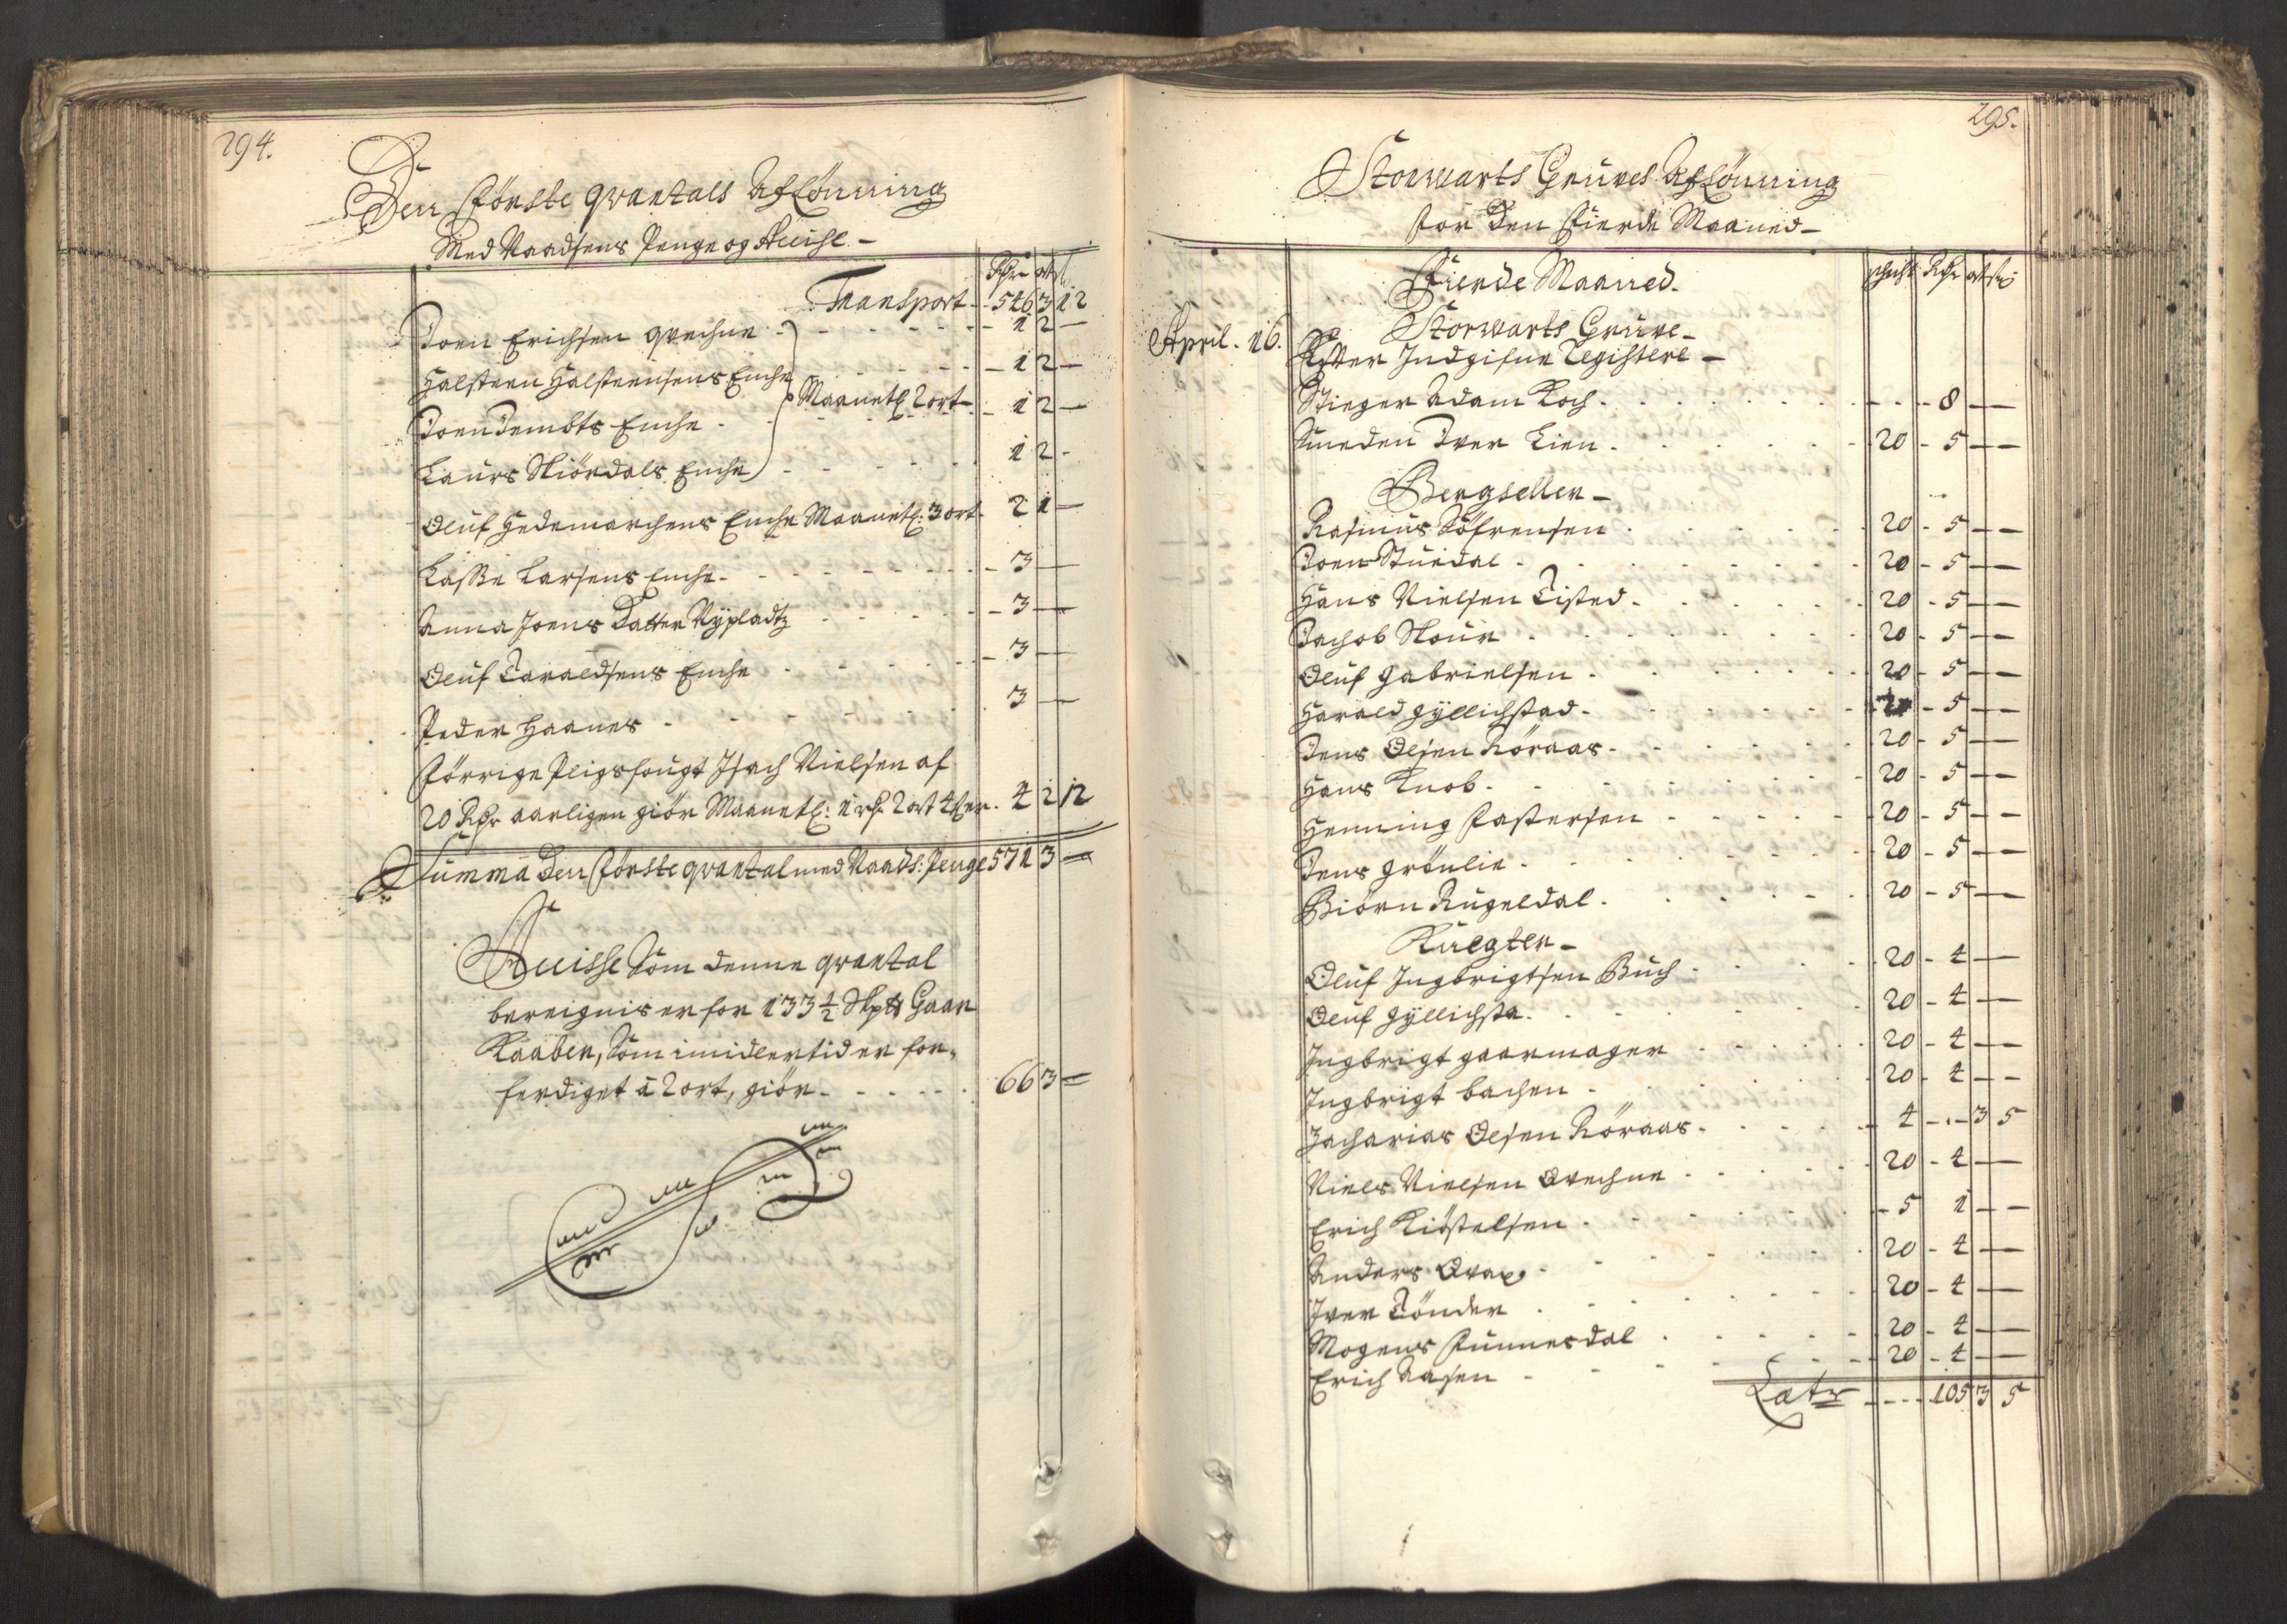 294.
Den Första qvartals Aflönning
Med Naadsens Penge og Accise
Rdr ort ß
Transport - 546 3 12
Joen Erichsen qvechne - 1 2 -
Halsteen Halsteensens Enche - 1 2 -
Maanetl 2 ort
Joen Jembts Enche - 1 2 -
Laurs Stiördals Enche - 1 2 -
Oluf Hedemarchens Enche Maanetl: 3 ort - 2 1 -
Lasse Larsens Enche - 3 -
Anna Joens Datter Nypladtz - 3 -
Oluf Taraldsens Enche - 3 -
Peder Haanes - 3 -
Förrige Pligsfougt Isach Nielsen af
20 Rdr aarligen giör Maanetl: 1 rdr 2 ort 4 ß er - 4 2 12
Summa Den Förste qvartal med Naads: Penge 571 3 -
Accisse Som denne qvartal
bereignis er for 133 1/2 Skp Gaar
Kaaber, Som imidlertid er for-
ferdiget à 2 ort, giör - 66 3 -
295.
Storwarts Gruves Aflönning
for Den Fierde Maaned
Fierde Maaned.
schicht Rdr ort ß
April. 16. Storwarts Gruve
Efter Indgifne Registere
Stieger Adam Koch - 8 -
Smeden Iver Lien - 20 - 5 -
Bergseller
Rasmus Söfrensen - 20 - 5 -
Joen Stuedal - 20 - 5 -
Hans Nielsen Tisted - 20 - 5 -
Jachob Skour - 20 - 5 -
Oluf Gabrielsen - 20 - 5 -
Harald Gyllichstad - 20 - 5 -
Jens Olsen Röraas - 20 - 5 -
Hans Knob - 20 - 5 -
Henning Pastersen - 20 - 5 -
Jens Grönlie - 20 - 5 -
Biörn Rugeldal - 20 - 5 -
Knegter
Oluf Ingbrigtsen Buch - 20 - 4 -
Oluf Gyllichsta - 20 - 4 -
Ingbrigt gaarmager - 20 - 4 -
Ingbrigt bachen - 20 - 4 - -
Zacharias Olsen Röraas - 4 - - 3 5
Niels Nielsen Qvechne - 20 - 4 -
Erich Kiöstelsen - 5 1 - -
Anders - 20 - 4 -
Iver Tönder - 20 - 4 -
Mogens Funnesdal - 20 - 4 -
Erich Aasen - 20 - 4 -
Latr - 105 3 5